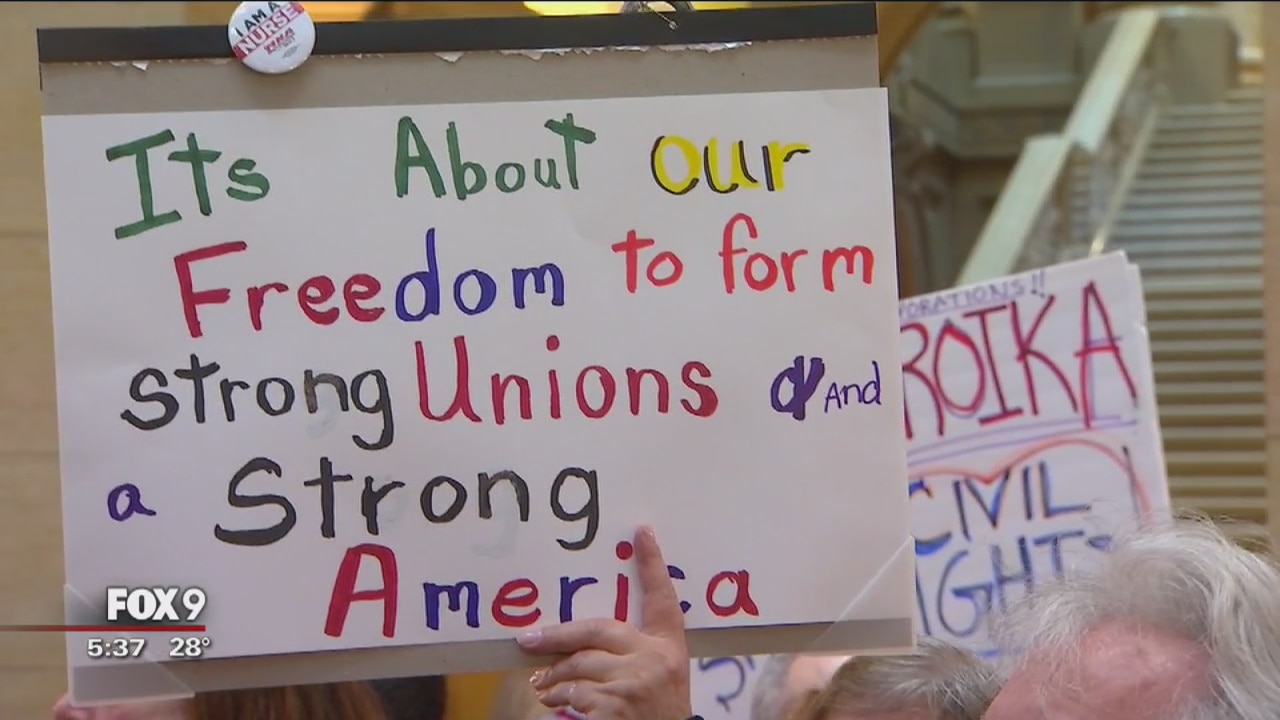 I AM A
NURSE
Its About our
Freedom to form
strong Unions And
a Strong
America
CIVIL
FOX 9
5:37 28°